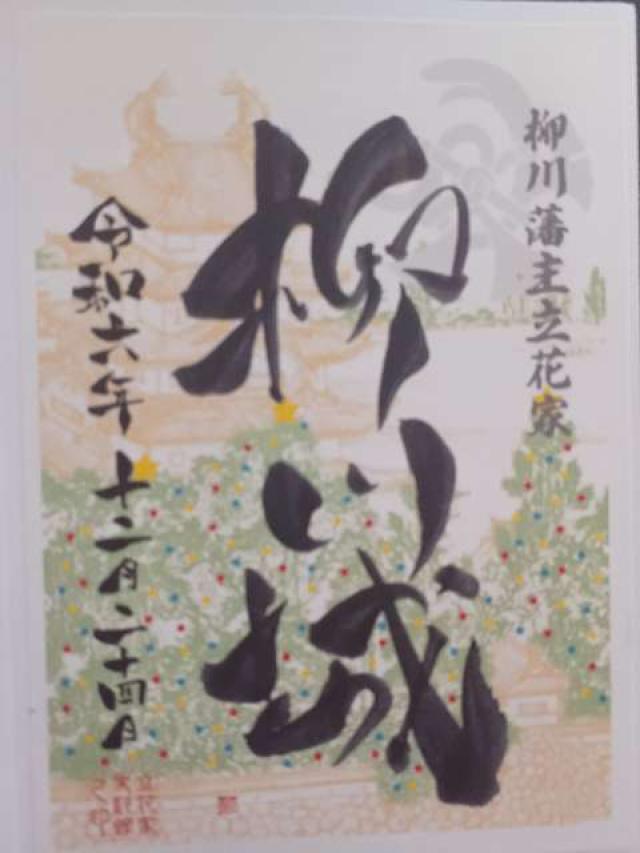 柳川藩主立花家
柳川城
令和六年十二月二十四日